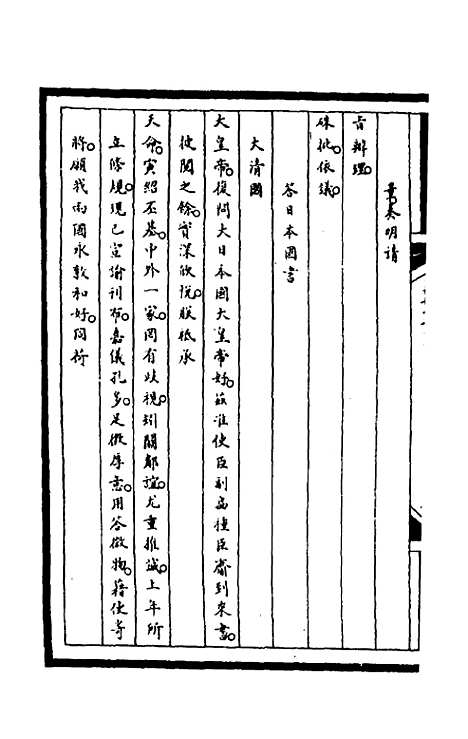 章奏明請
旨辦理。
硃批依議。
答日本國書
大清國
大皇帝。復問大日本國大皇帝好。茲准使臣副島種臣齎到來書。
披閱之餘。實深欣悅。朕祗承
天命。寅紹丕基。中外一家。罔有歧視。矧關鄰誼。尤重推誠。上年所
立條規。現已宣諭刊布。嘉儀孔多。足徵厚意。用答微物。藉使寄
將。願我兩國永敦和好。同荷